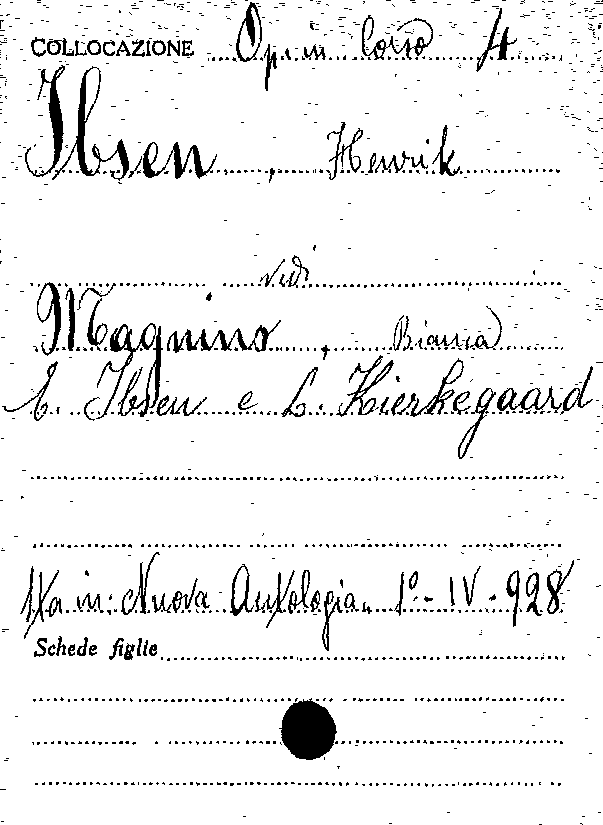 COLLOCAZIONE Op. in Corso 4
Ibsen, Henrik
vedi
Magnino, Bianca
E. Ibsen e L. Kierkegaard
in: Nuova Antologia. 1º - IV - 928
Schede figlie